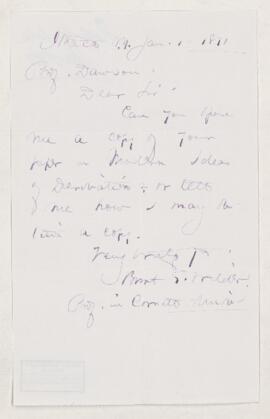 Jan. 1
Prof. Dawson.
Dear Sir:
Can you spare
me a copy of your
paper on Modern Ideas
of Derivation; or tell
me how I may
a copy.
Very truly
Burt G. Wilder.
Prof. in Cornell Univ.